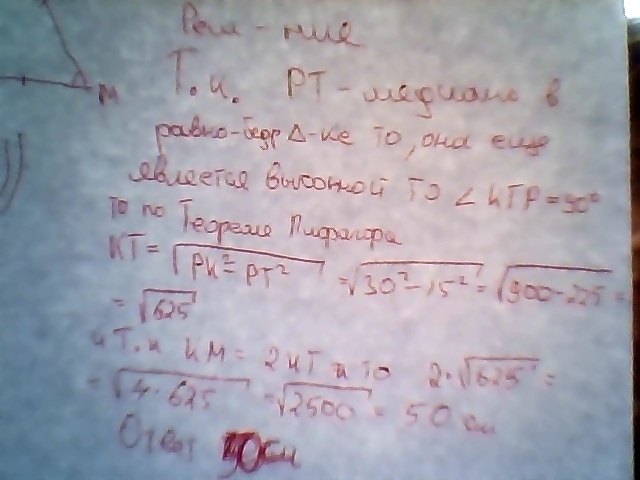 Реш-ние
Т.к. PT-медиана в
равно-бедр Δ-ке то, она еще
является высотной то ∠KTP=90°
То по Теореме Пифагора
M
KT=√PK²-PT² =√30²-15²=√900-225=
=√625
и Т.к KM=2KT и то 2·√625=
=√4·625 =√2500=50 см
Ответ 50см